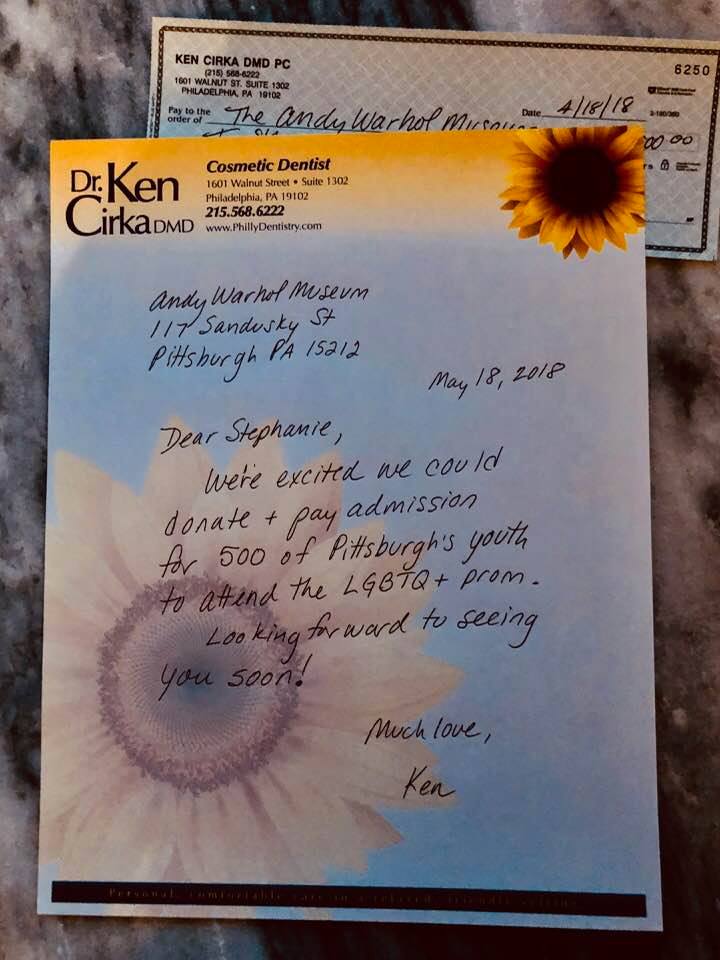 KEN CIRKA DMD PC
(215) 568-6222
1601 WALNUT ST. SUITE 1302
PHILADELPHIA, PA 19102
6250
Date 4/18/18
Pay to the
order of The Andy Warhol
00 00
Dr. Ken
Cirka DMD
Cosmetic Dentist
1601 Walnut Street • Suite 1302
Philadelphia, PA 19102
215.568.6222
www.PhillyDentistry.com
Andy Warhol Museum
117 Sandusky St
Pittsburgh PA 15212
May 18, 2018
Dear Stephanie,
We're excited we could
donate + pay admission
for 500 of Pittsburgh's youth
to attend the LGBTQ+ prom.
Looking forward to seeing
you soon!
Much love,
Ken
Personal, comfortable care in a relaxed, friendly setting